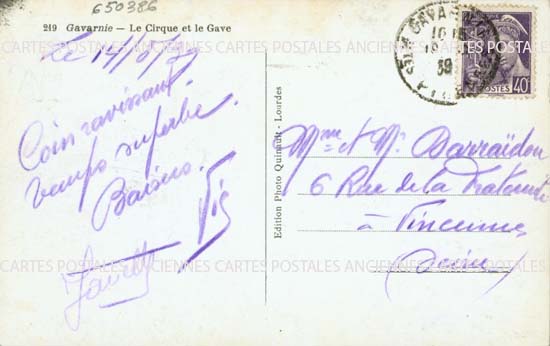 650386
219 Gavarnie — Le Cirque et le Gave
Le 14/8/39
Coin ravissant
temps superbe.
Baisers.
Edition Photo Quinault - Lourdes
GAVARNIE
39
POSTES 40
Mme et Mr Barraïdou
6 Rue de la
à Vincennes
Seine
CARTES POSTALES ANCIENNES CARTES POSTALES ANCIENNES CARTES POSTALES